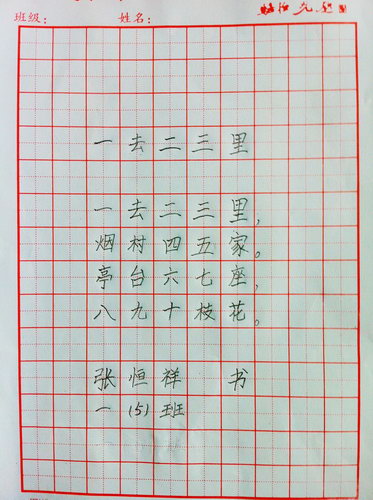 班级： 姓名：
一去二三里
一去二三里，
烟村四五家。
亭台六七座，
八九十枝花。
张恒祥 书
一（5）班